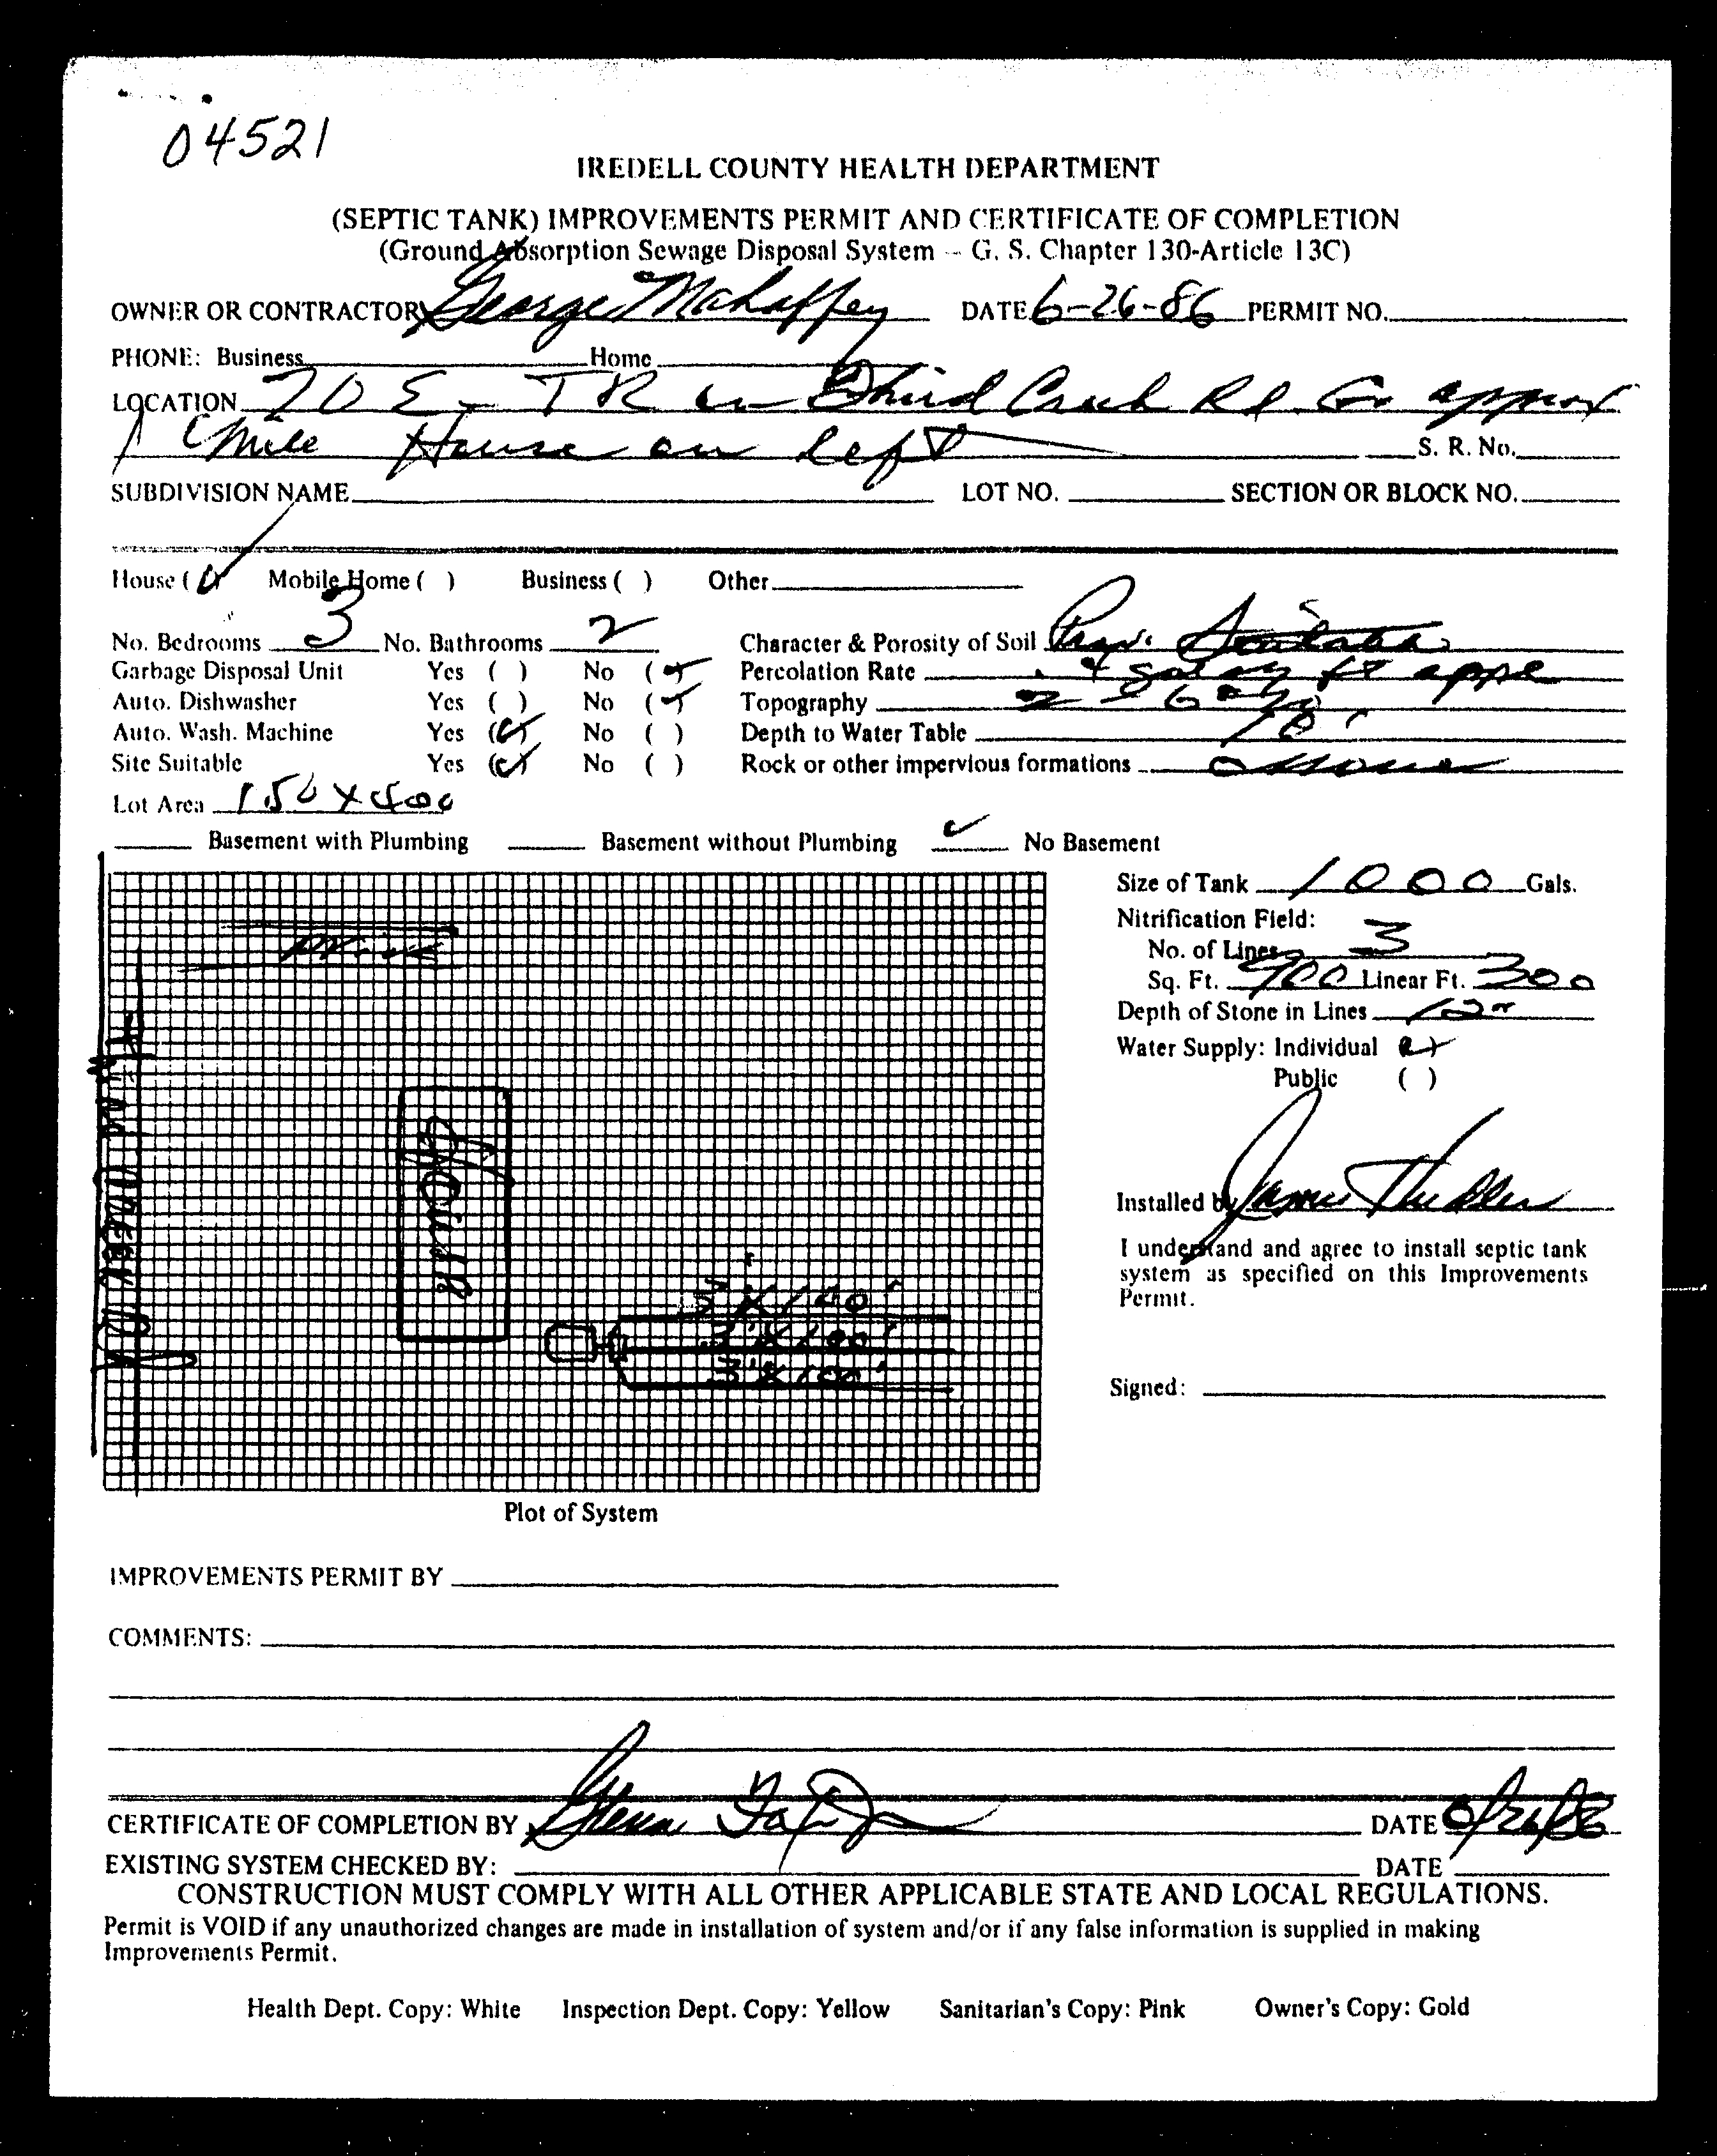 04521
IREDELL COUNTY HEALTH DEPARTMENT
(SEPTIC TANK) IMPROVEMENTS PERMIT AND CERTIFICATE OF COMPLETION
(Ground Absorption Sewage Disposal System -- G. S. Chapter 130-Article 13C)
OWNER OR CONTRACTOR George Mahaffey DATE 6-26-86 PERMIT NO.
PHONE: Business Home
LOCATION 70 E - TR on Third Creek Rd. Go approx
1 Mile House on left S. R. No.
SUBDIVISION NAME LOT NO. SECTION OR BLOCK NO.
House (✓) Mobile Home ( ) Business ( ) Other
No. Bedrooms 3 No. Bathrooms 2 Character & Porosity of Soil Prov. Suitable
Garbage Disposal Unit Yes ( ) No (✓) Percolation Rate .4 gal sq ft appr
Auto. Dishwasher Yes ( ) No (✓) Topography 2 - 6%
Auto. Wash. Machine Yes (✓) No ( ) Depth to Water Table 10'
Site Suitable Yes (✓) No ( ) Rock or other impervious formations none
Lot Area 150 X 400
Basement with Plumbing Basement without Plumbing ✓ No Basement
Size of Tank 1000 Gals.
Nitrification Field:
No. of Lines 3
Sq. Ft. 900 Linear Ft. 300
Depth of Stone in Lines 12"
Water Supply: Individual (✓)
Public ( )
Drive
Third Creek Rd
House
3' X 100'
3' X 100'
3' X 100'
Installed by James
I understand and agree to install septic tank
system as specified on this Improvements
Permit.
Signed:
Plot of System
IMPROVEMENTS PERMIT BY
COMMENTS:
CERTIFICATE OF COMPLETION BY Glenn DATE 6/26/86
EXISTING SYSTEM CHECKED BY: DATE
CONSTRUCTION MUST COMPLY WITH ALL OTHER APPLICABLE STATE AND LOCAL REGULATIONS.
Permit is VOID if any unauthorized changes are made in installation of system and/or if any false information is supplied in making
Improvements Permit.
Health Dept. Copy: White Inspection Dept. Copy: Yellow Sanitarian's Copy: Pink Owner's Copy: Gold